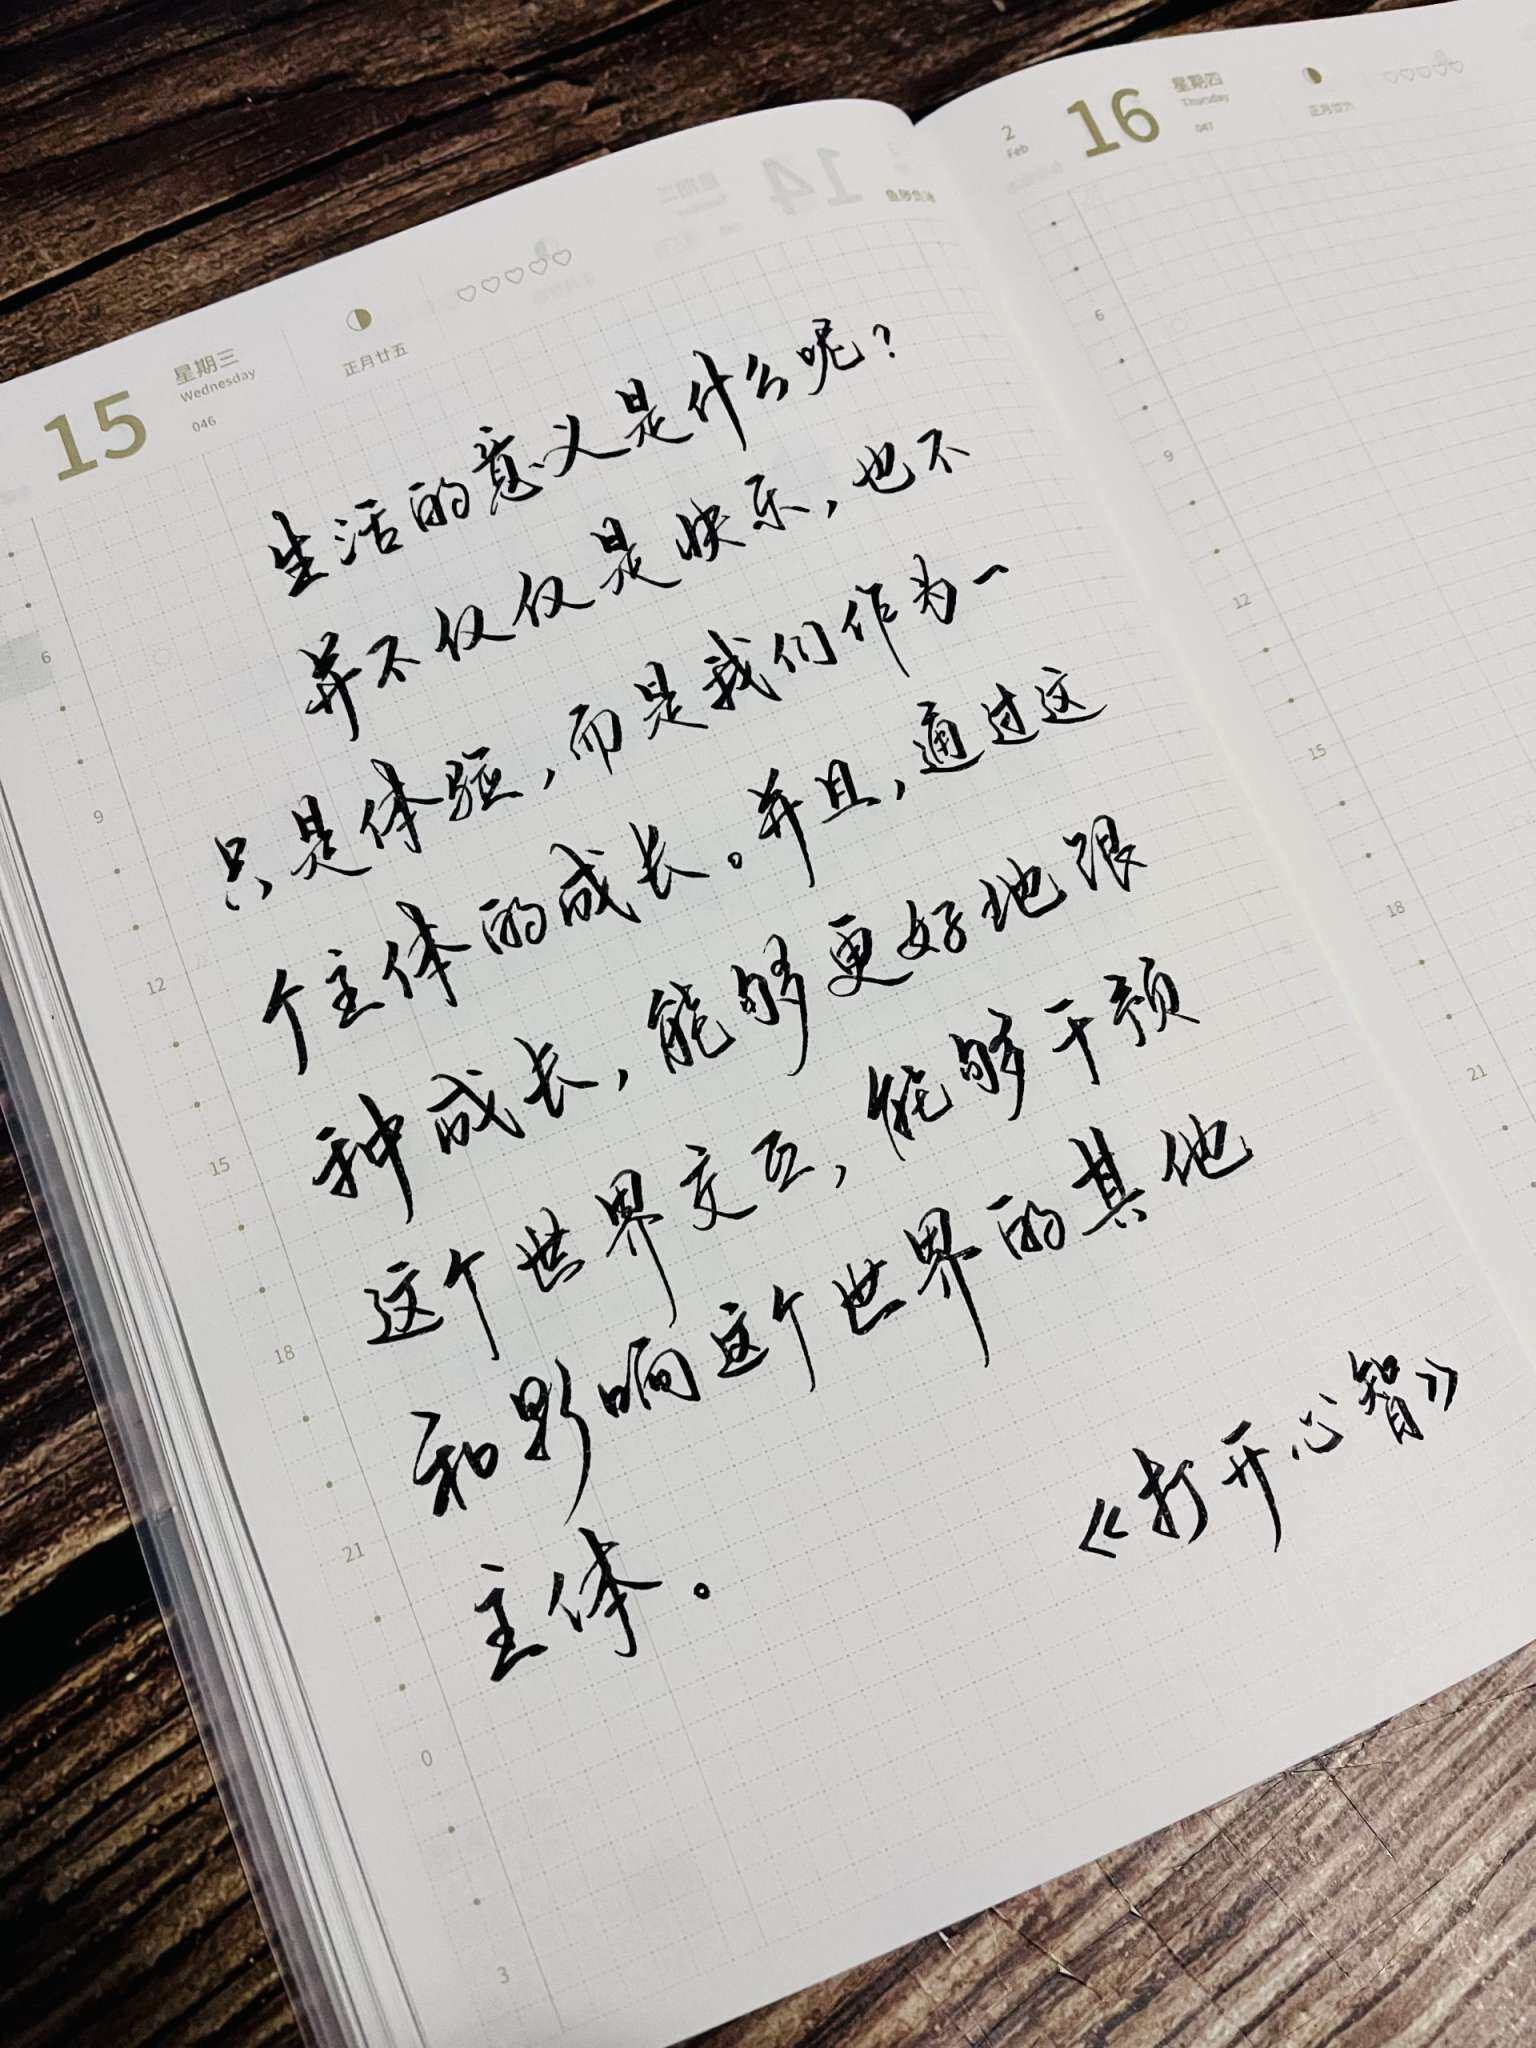 15
星期三
Wednesday
046
正月廿五
生活的意义是什么呢？
并不仅仅是快乐，也不
只是体验，而是我们作为一
个主体的成长。并且，通过这
种成长，能够更好地跟
这个世界交互，能够干预
和影响这个世界的其他
主体。
《打开心智》
6
9
12
15
18
21
0
3
2
Feb
16
星期四
Thursday
047
正月廿六
6
9
12
15
18
21